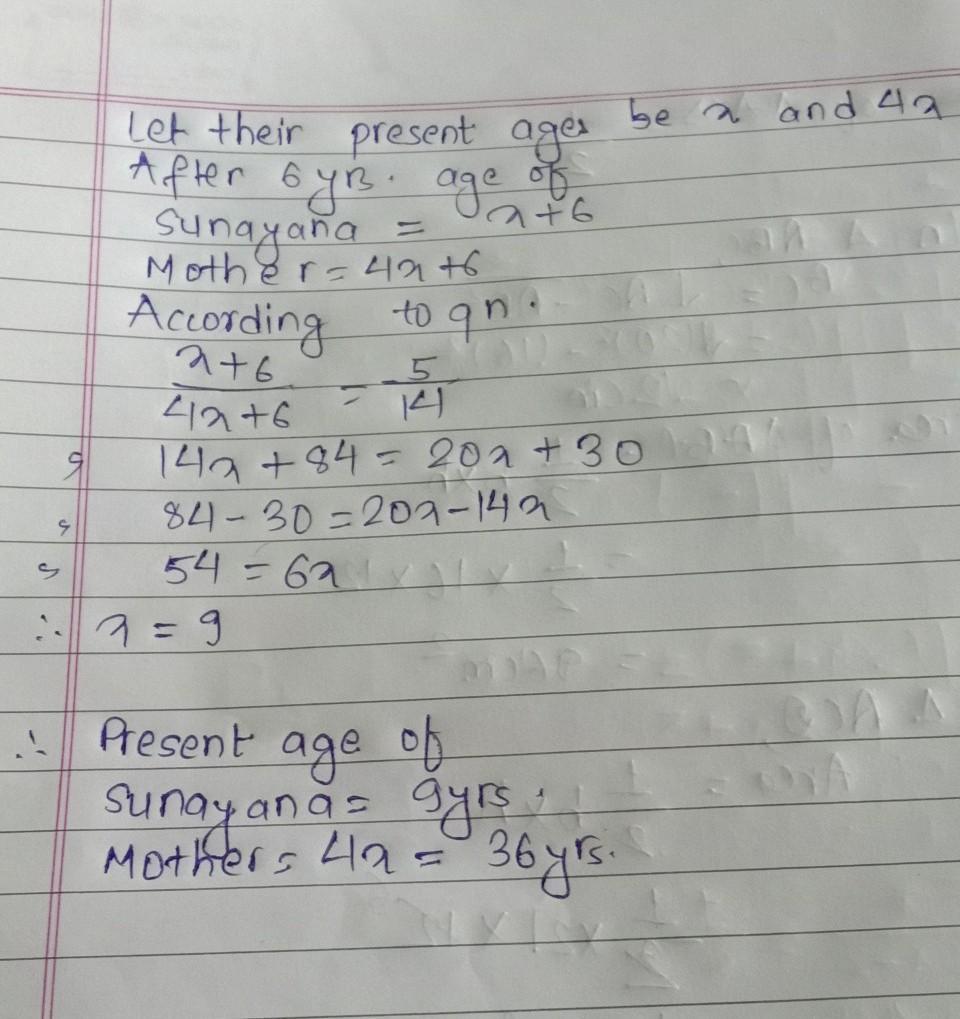 Let their present ages be x and 4x
After 6 yrs. age of
Sunayana = x+6
Mother = 4x+6
According to qn.
x+6 / 4x+6 = 5 / 14
, 14x + 84 = 20x + 30
, 84 - 30 = 20x - 14x
, 54 = 6x
∴ x = 9
∴ Present age of
Sunayana = 9yrs.
Mother = 4x = 36yrs.